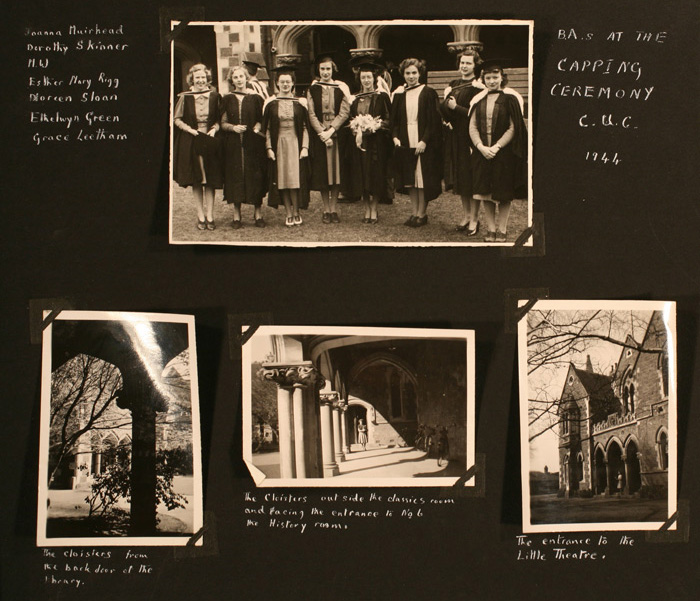 Joanna Muirhead
Dorothy Skinner
M.W
Esther Mary Rigg
Doreen Sloan
Ethelwyn Green
Grace Leetham
B.A.s AT THE
CAPPING
CEREMONY
C.U.C.
1944
The cloisters from
the back door of the
library.
The Cloisters outside the classics room
and facing the entrance to No 6
the History room.
The entrance to the
Little Theatre.